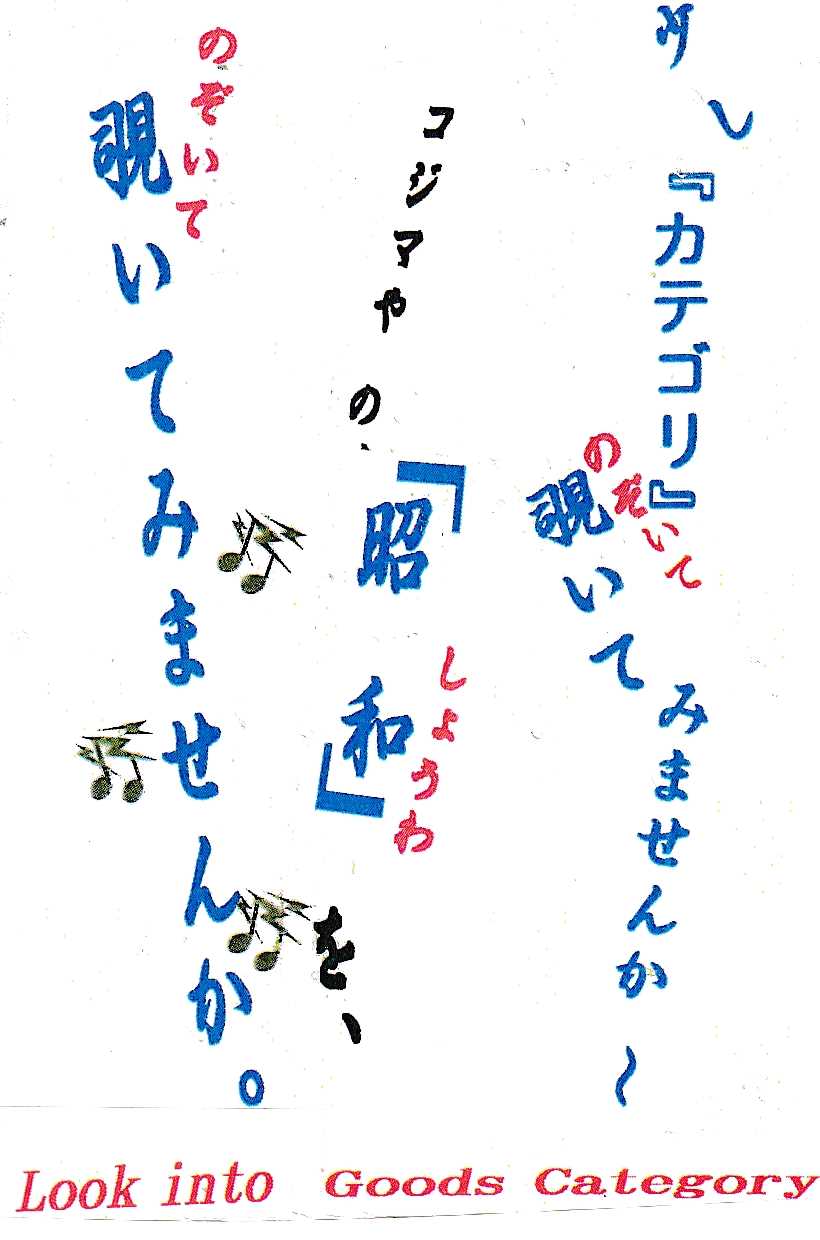 し『カテゴリ』
のぞいて
覗いてみませんか～
コジマやの、「昭和」を、
しょうわ
のぞいて
覗いてみませんか。
Look into Goods Category